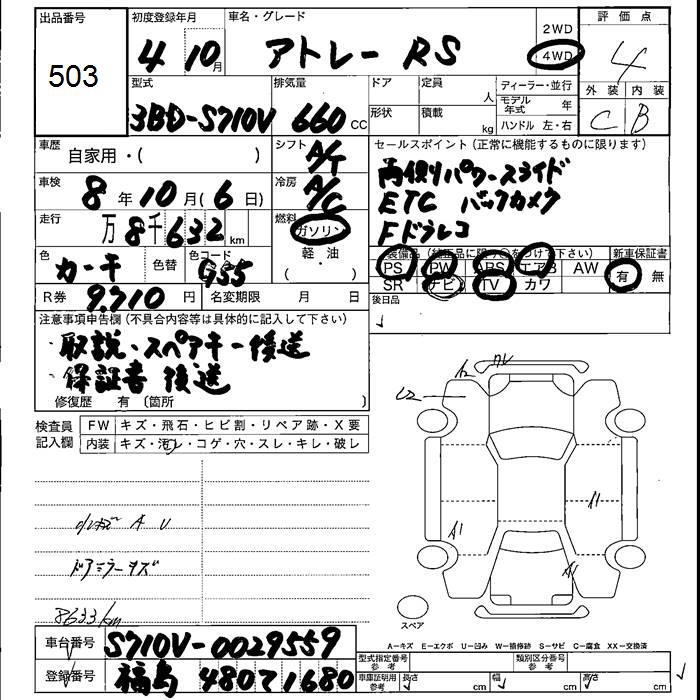 出品番号
503
初度登録年月
4 10月
車名・グレード
アトレー RS
2WD
4WD
評価点
4
外装 内装
C B
型式
3BD-S710V
排気量
660 cc
ドア
定員
人
形状
積載
kg
ディーラー・並行
モデル年式 年
ハンドル 左・右
車歴
自家用・( )
シフト
A/T
車検
8年10月(6日)
冷房
A/C
走行
万8千632km
燃料
ガソリン
軽・油
( )
色
カーキ
色替
色コード
G55
R券
9,710円
名変期限 月 日
セールスポイント(正常に機能するものに限ります)
両側パワースライド
ETC バックカメラ
Fドラレコ
装備品(純正品に限り○をつけて下さい)
新車保証書
PS PW ABS エアB AW
有 無
SR ナビ TV カワ
後日品
注意事項申告欄(不具合内容等は具体的に記入して下さい)
・取説・スペアキー後送
・保証書 後送
修復歴 有〔箇所 〕
検査員記入欄
FW
キズ・飛石・ヒビ割・リペア跡・X要
内装
キズ・汚レ・コゲ・穴・スレ・キレ・破レ
A U
ドアミラーキズ
8633km
U2
A1
A1
A1
スペア
A−キズ E−エクボ U−凹み W−補修跡 S−サビ C−腐食 XX−交換済
車台番号
S710V-0029559
登録番号
福島 480 ろ 1680
型式指定番号 参考
類別区分番号 参考
車庫証明用 参考
長さ cm
幅 cm
高さ cm